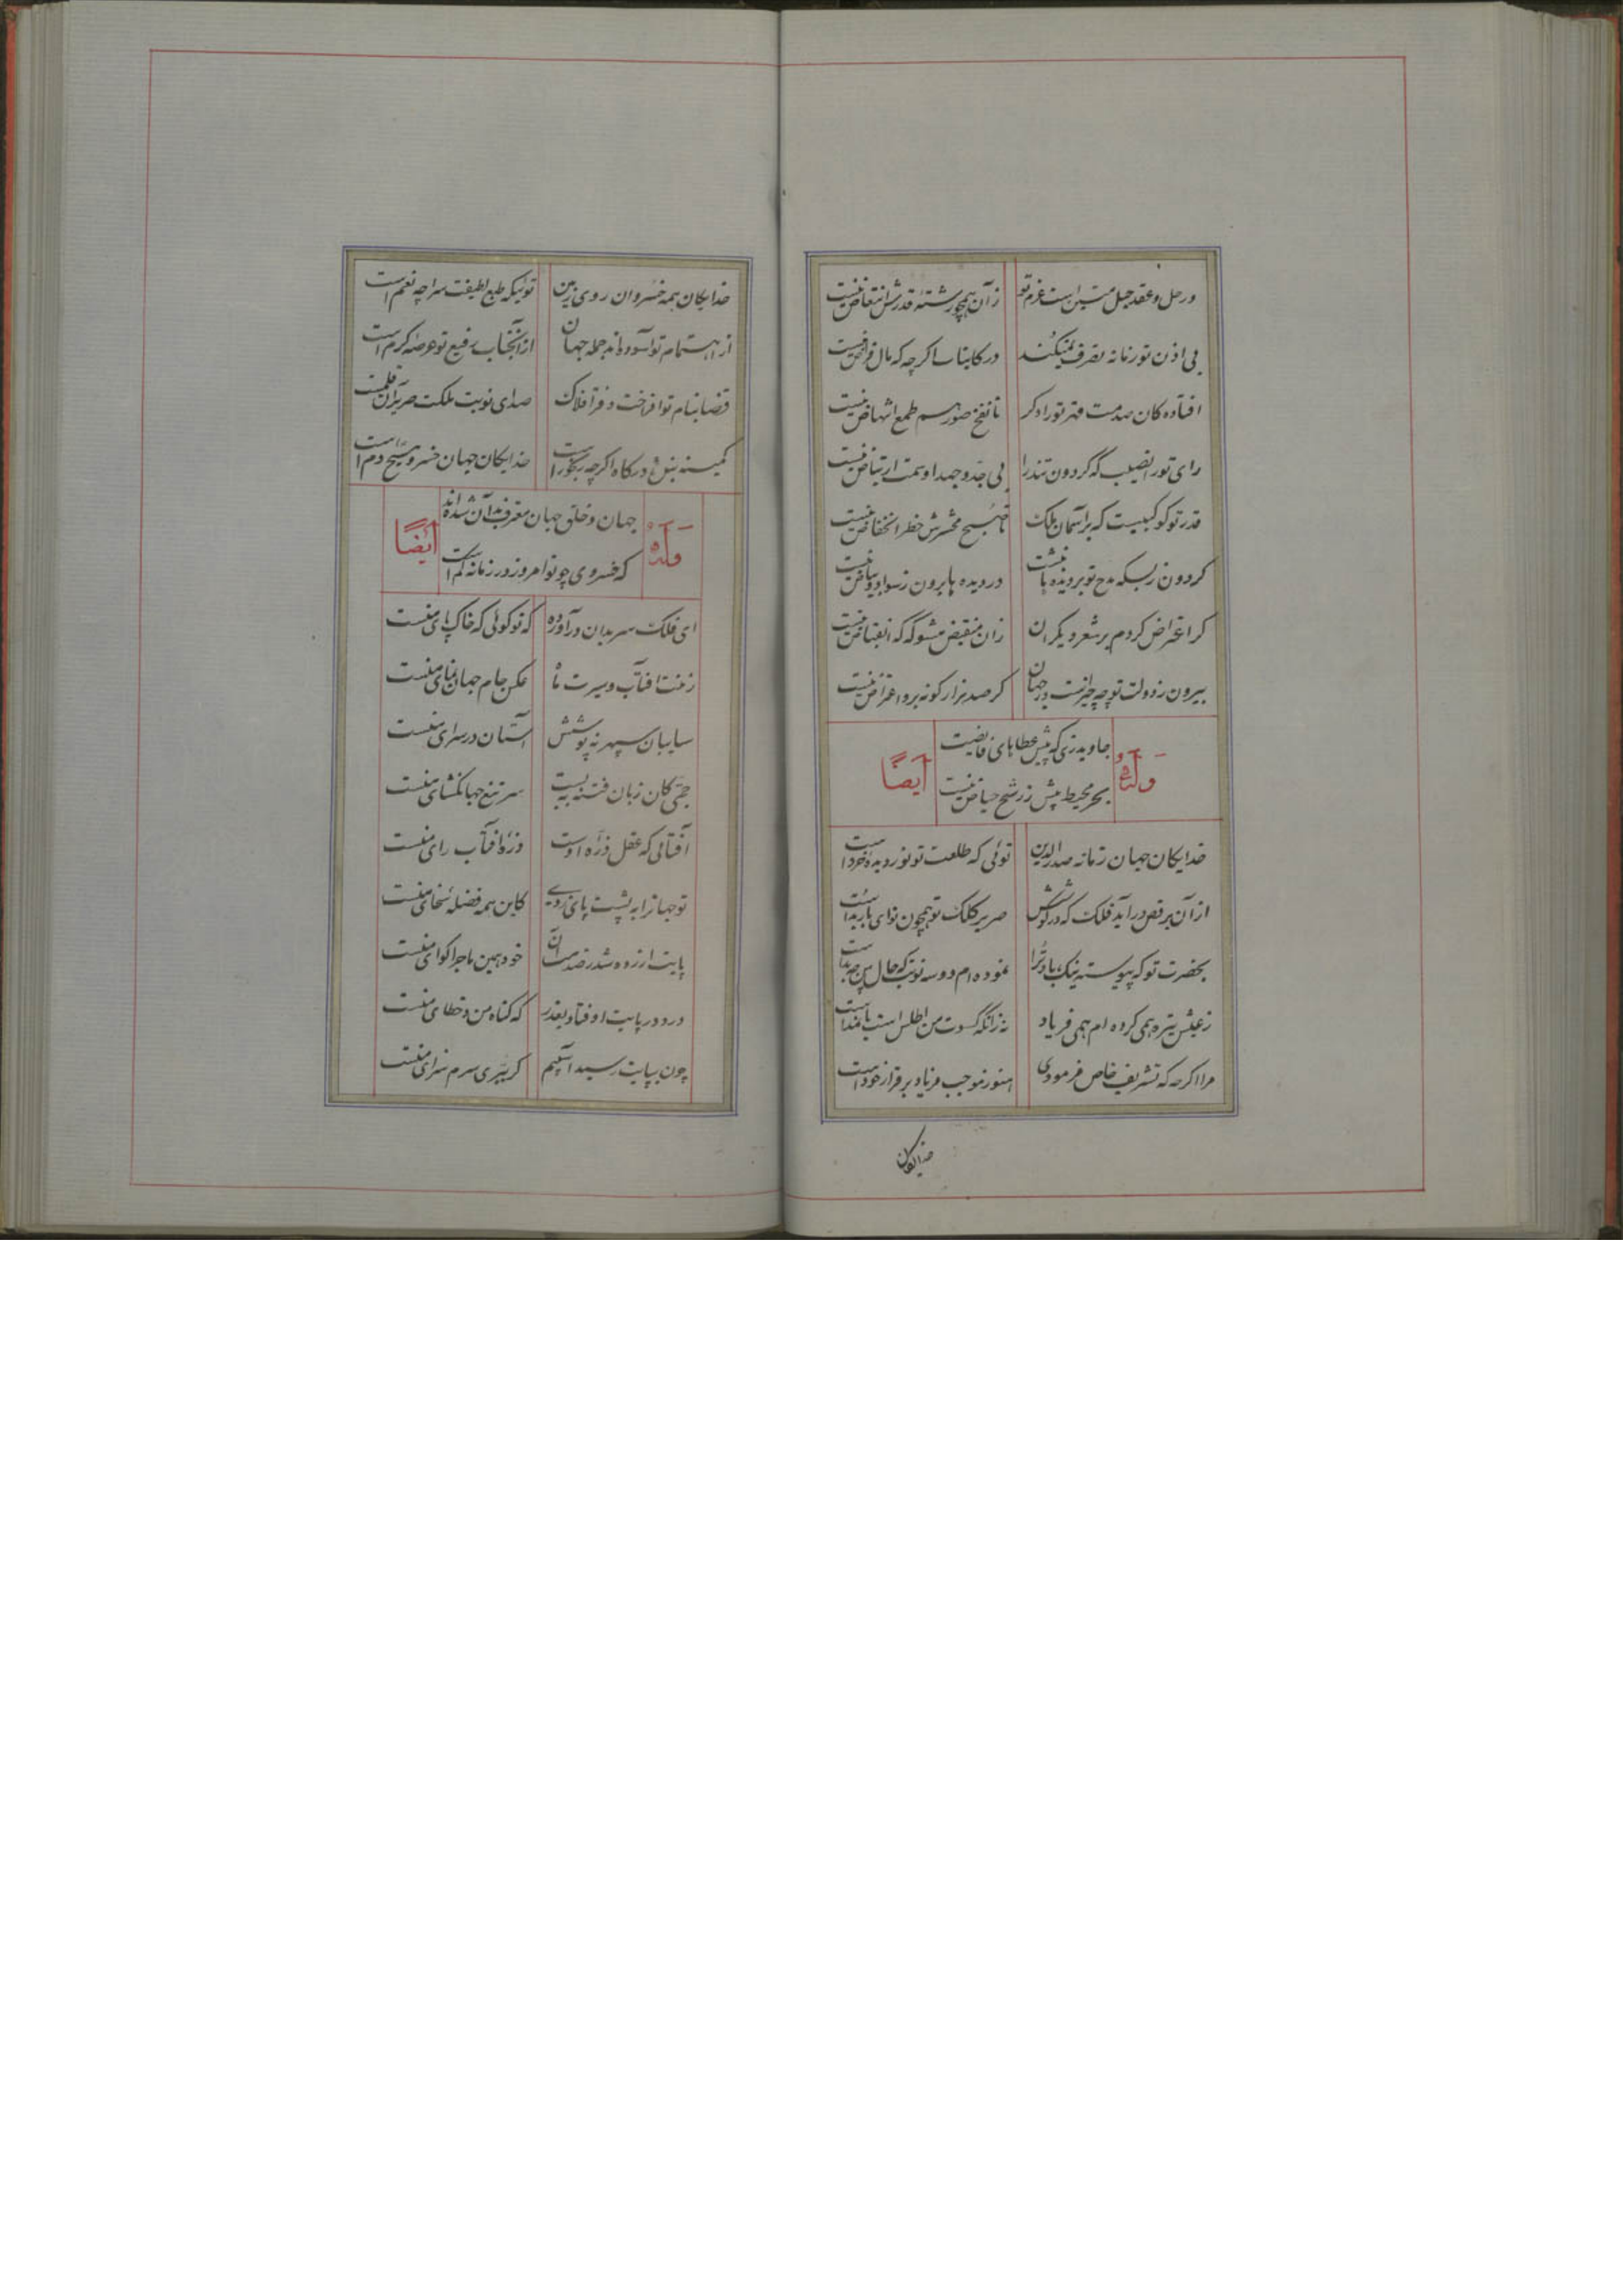 در حل و عقد حبل متین است عزم تو زآن همچو رشته قدرش انتقاض نیست
بی اذن تو زمانه تصرف نمیکند در کاینات اگرچه که مال قراض نیست
افتاده کان صدمت قهر تو را دگر تا نفخ صور هم طمع انتهاض نیست
رای تو را نصیب که گردون تند را بی جد و جهد او سمت ارتیاض نیست
قدر تو کوکبیست که بر آسمان ملک تا صبح محشرش خطر انخفاض نیست
گردون ز بسکه مدح تو بر دیده ها نبشت در دیده ها برون ز سواد و بیاض نیست
گر اعتراض کردم بر شعر دیگران زان منقبض مشو که گه انقباض نیست
بیرون ز دولت تو چه چیز است در جهان گر صد هزار گونه برو اعتراض نیست
جاوید زی که پیش عطاهای فایضت
بحر محیط بیش ز رشح حیاض نیست
وله ایضا
خدایگان جهان زمانه صدرالدین توئی که طلعت تو نور دیده خرد است
از آن برقص درآید فلک که در گوشش صریر کلک تو همچون نوای باربد است
بحضرت تو که پیوسته نیک باد ترا نموده ام دو سه نوبت که حال من چه بد است
ز عیش تیره همی کرده ام همی فریاد نه زانکه کسوت من اطلس است یا نمد است
مرا اگرچه که تشریف خاص فرمودی هنوز موجب فریاد برقرار خود است
خدایگان
خدایگان همه خسروان روی زمین توئیکه طبع لطیفت سراچه نعم است
از اهتمام تو آسوده اند جمله جهان از آن جناب رفیع تو عرصه کرم است
قضا بنام تو افراخت دفتر افلاک صدای نوبت ملکت صریر آن قلمست
کمینه بنده درگاه اگرچه رنجور است خدایگان جهان خسرو مسیح دم است
جهان و خلق جهان معترف بدان شده اند
که خسروی چو تو امروز در زمانه کم است
وله ایضا
ای فلک سر بدان درآورده که تو گوئی که خاک پای منست
زینت افتاب و سیرت ماه عکس جام جهان نمای منست
سایبان سپهر نه پوشش آستان در سرای منست
حجتی کان زبان فتنه ببست سر تیغ جهانگشای منست
آفتابی که عقل ذره اوست ذره افتاب رای منست
تو جهانرا به پشت پای زدی کاین همه فضله سخای منست
پایت ازرده شد ز صدمت آن خود همین ماجرا گوای منست
درد در پایت اوفتاد بعذر که گناه من و خطای منست
چون بپایت رسید آسیبم گر ببری سرم سزای منست